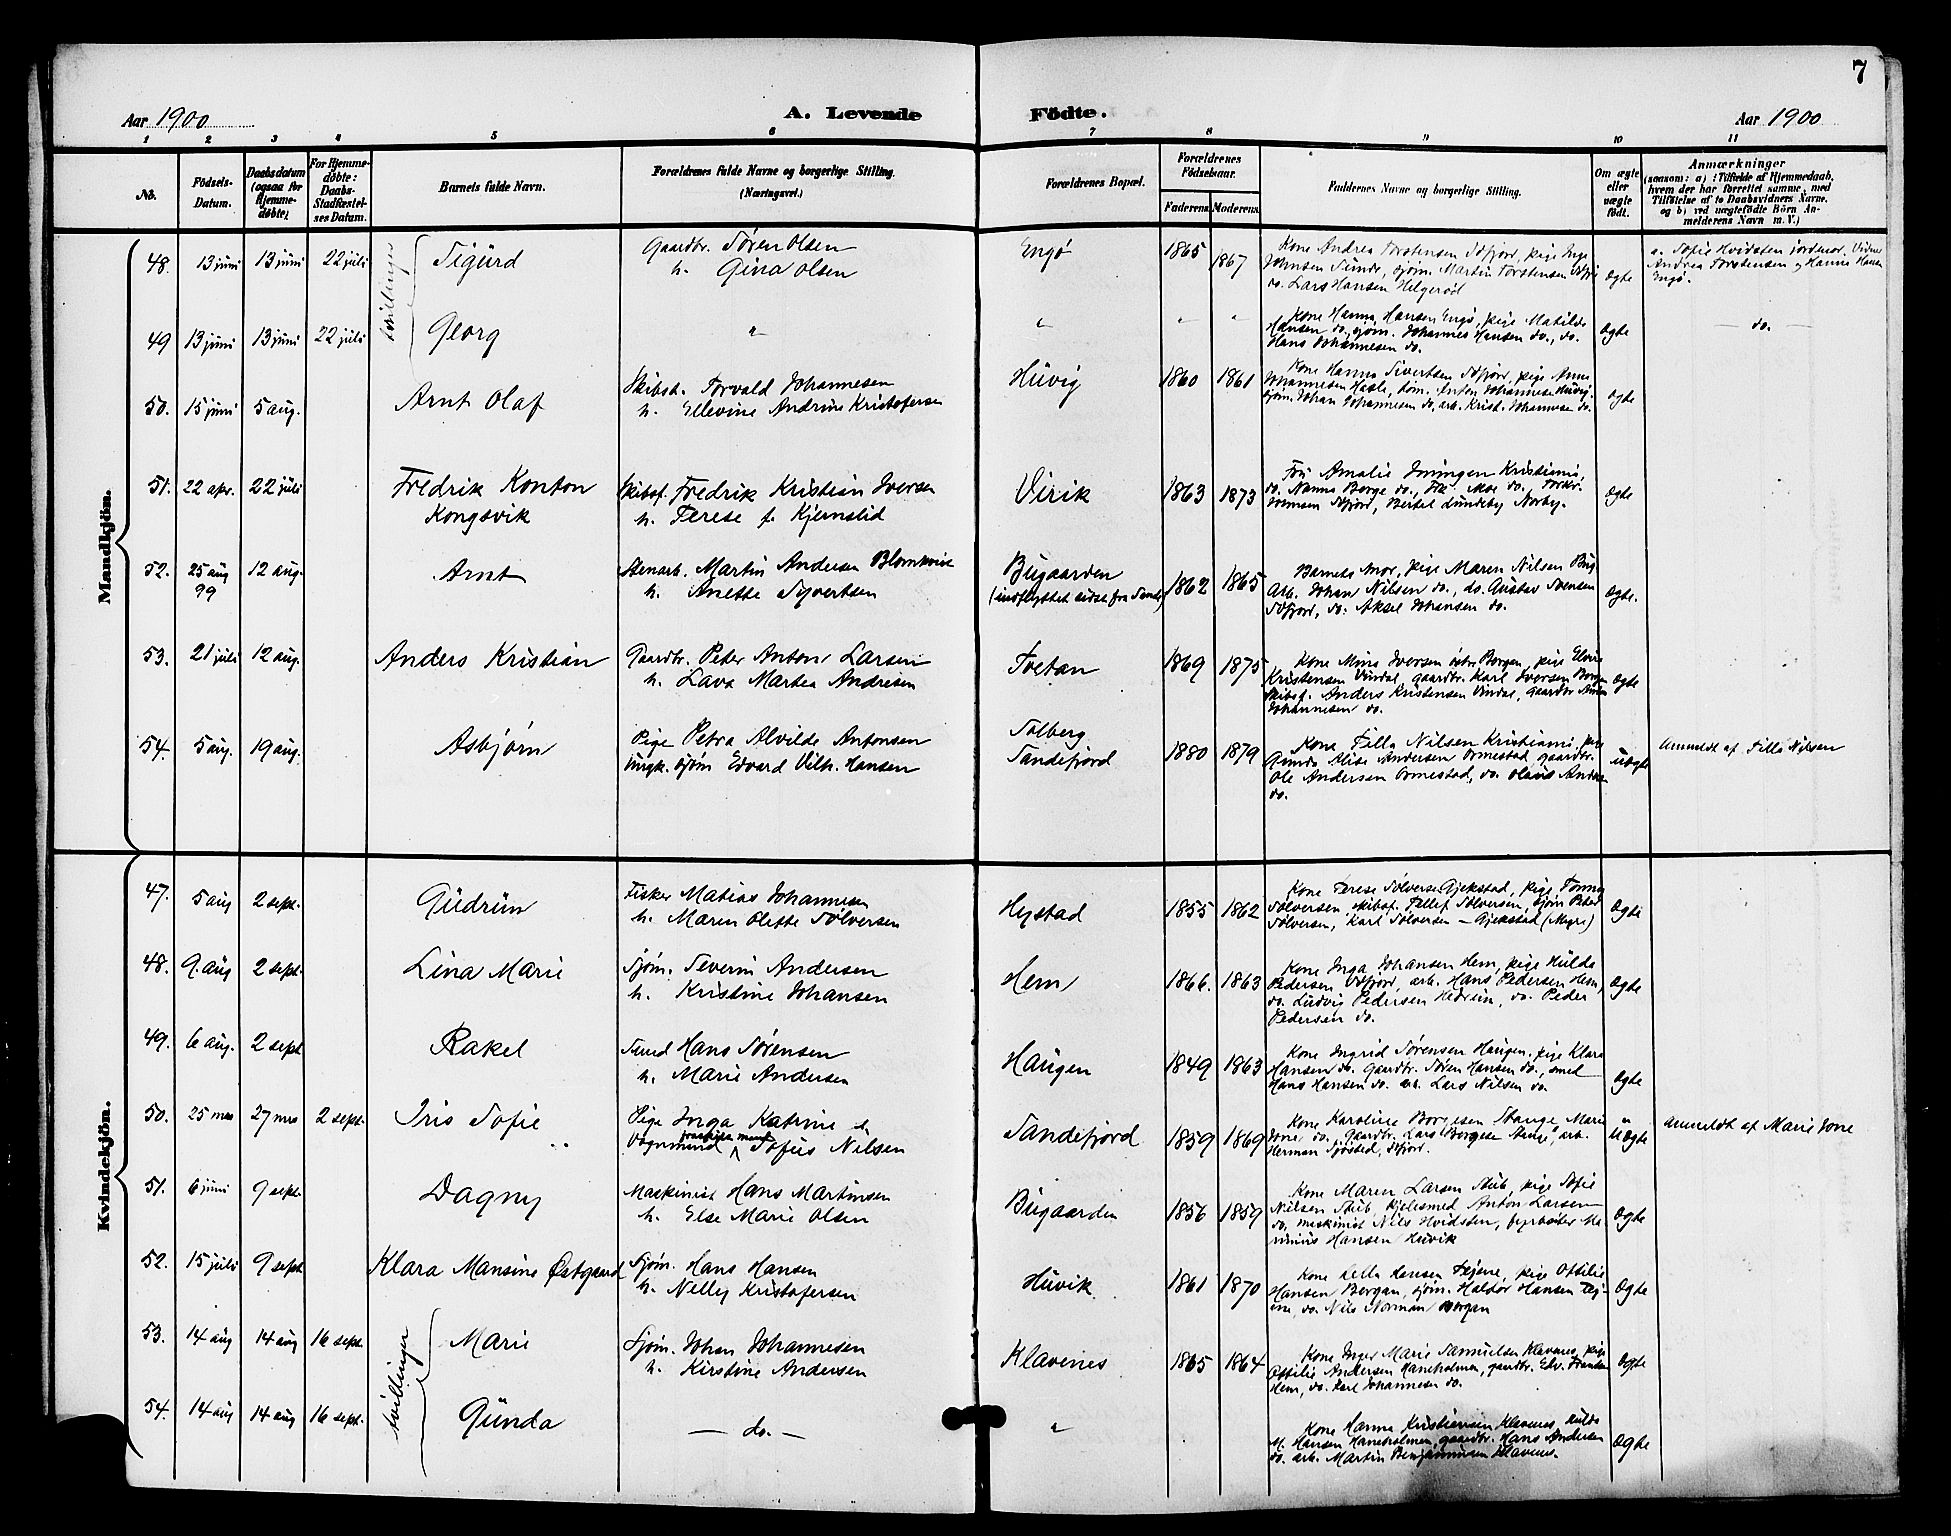 7
Aar 1900 A. Levende Födte. Aar 1900
1 2 3 4 5 6 7 8 9 10 11
No. Födsels-Datum. Daabsdatum (ogsaa for Hjemme-döbte; For Hjemme-döbte: Daabs-Stadfæstelses Datum. Barnets fulde Navn. Forældrenes fulde Navne og borgerlige Stilling. (Næringsvei.) Forældrenes Bopæl. Forældrenes Födselsaar. Faderens Moderens Faddernes Navne og borgerlige Stilling. Om ægte eller uægte födt. Anmærkninger (saasom: a) i Tilfælde af Hjemmedaab, hvem der har forrettet samme, med Tilföielse af to Daabsvidners Navne, og b) ved uægtefödte Börn Anmelderens Navn m. V.)
Mandkjön.
tvillinger
48. 13 juni 13 juni 22 juli Sigurd Gaardbr. Søren Olsen Engø 1865 1867 Kone Andrea Torstensen Sdfjord, pige Inga
h. Gina Olsen Johnsen Sunde, sjøm. Martin Torstensen
do. Lars Hansen Helgerød ægte
a. Sofie Hvidsten jordmor. Vidner
Andrea Torstensen og Hanna Hansen
Engø.
49 13 juni 13 juni 22 juli Georg " " " " Kone Hanna Hansen Engø, pige Matilde
Hansen do. sjøm. Johannes Hansen do., do.
Hans Johannesen do. ægte — do. —
50. 15 juni 5 aug. Arnt Olaf Skibst. Torvald Johannesen Huvig 1860 1861 Kone Hanna Sivertsen Sdfjord, pige Anna
h. Ellevine Andrine Kristofersen Johannesen Hasle, Anton Johannesen Huvig
sjøm. Johan Johannesen do, arb. Krist. Johannesen do. ægte
51. 22 apr. 22 juli Fredrik Konton Skibsf. Fredrik Kristian Iversen Virik 1863 1873 Fru Amalie Kristiania,
Kongsvik h. Terese f. Kjernslid do. Nanna Borge do., Frk. Moe do.
Svensen Sdfjord, Bertel Lundeby Norby. ægte
52. 25 aug 99 12 aug. Arnt Stenarb. Martin Andersen Blomkvist Bugaarden 1862 1865 Barnets mor, pige Maren Nilsen Bug.
h. Anette Syvertsen (indflyttet sidst fra Sande) Arb. Johan Nilsen do., do. Gustav Svensen
Sdfjord, do. Aksel Johansen do. ægte.
53. 21 juli 12 aug. Anders Kristian Gaardbr. Peter Anton Larsen Tvetan 1869 1875 Kone Mina Iversen østre Borgen, pige Elvine
h. Lava Martea Andresen Kristensen Vindal, gaardbr. Karl Iversen Borgen
Skibsf. Anders Kristensen Vindal, gaardbr.
Johannesen do. ægte
54. 5 aug. 19 aug. Asbjørn Pige Petra Alvilde Antonsen Solberg 1880 1879 Kone Tilla Nilsen Kristiania, pige
Ungk. sjøm Edvard Vilh. Hansen Sandefjord Gunda Alise Andersen Ormestad, gaardbr.
Ole Andersen Ormestad, do. Olaus Andersen
do. uægte Anmeldt af Tilla Nilsen
Kvindekjön.
47. 5 aug 2 sept. Gudrun Fisker Matias Johannesen Hystad 1855 1862 Kone Terese Sølversen Gjekstad, pige
h. Maren Olette Sølversen Sølversen, skibsf. Tellef Sølversen, sjøm Peter
Sølversen, Karl Sølversen – Gjekstad (Myra) ægte
48. 9. aug 2 sept. Lina Marie Sjøm. Severin Andersen Hem 1866. 1863 Kone Inga Johansen Hem, pige Hulda
h. Kristine Johansen Pedersen Sdfjord, arb. Hans Pedersen Hem,
do. Ludvig Pedersen Hedrum, do. Peder
Pedersen do. ægte
49. 6 aug. 2 sept Rakel Smed Hans Sørensen Haugen 1849 1863 Kone Ingrid Sørensen Haugen, pige Klara
h. Marie Andersen Hansen do. Gaardbr. Søren Hansen do., smed
Hans Hansen do. arb. Lars Nilsen do. ægte
50. 25 mrs 27 mrs 2 sept. Iris Sofie Pige Inga Katrine Sandefjord 1859 1869 Kone Karoline Borgesen Stange, Marie
Vognmand fraskilte mand Sofus Nilsen Tone, do. Gaardbr. Lars Borgesen Stange, arb.
Herman Sjøsted, Sdfjord. uægte Anmeldt af Marie Tone
51. 6 juni 9 sept. Dagny Maskinist Hans Martinsen Bugaarden 1856 1859 Kone Maren Larsen Stub, pige Sofie
h. Else Marie Olsen Nilsen Stub, Kjelesmed Anton Larsen
do, maskinist Nils Hvidsten, fyrbøter
Hansen Huvik ægte
52. 15 juli 9 sept Klara Mansine Østgaard Sjøm. Hans Hansen Huvik 1861 1870 Kone Hansen Fejene, pige Ottilie
h. Nelly Kristofersen Hansen Bergan, sjøm. Haldor Hansen Fej-
ene, do. Nils Norman Bergan ægte
tvillinger
53. 14 aug 14 aug 16 sept. Marie Sjøm. Johan Johannesen Klavenes 1865 1864 Kone Inger Marie Samuelsen Klavenes, pige
h. Kirstine Andersen Ottilie Andersen Haneholmen, gaardbr. Edv. Frantsen
Hem, do. Karl Johannesen do. ægte
54. 14 aug 14 aug 16 sept. Gunda — do. — " Kone Hanna Kristiansen Klavenes, Hulda
M. Hansen Haneholmen, gaardbr. Hans Andersen
do. arb. Martin Benjaminsen Klavenes. ægte